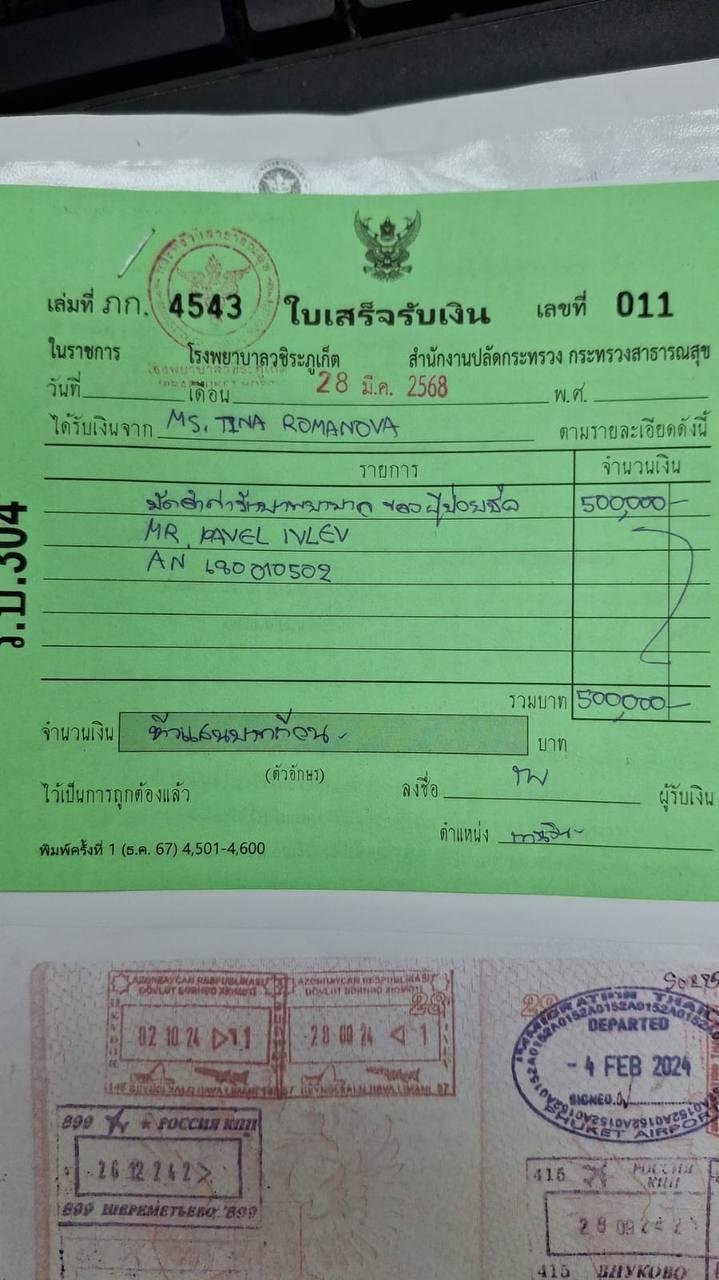 เล่มที่ ภก. 4543 ใบเสร็จรับเงิน เลขที่ 011
ในราชการ โรงพยาบาลวชิระภูเก็ต สำนักงานปลัดกระทรวง กระทรวงสาธารณสุข
วันที่ เดือน 28 มี.ค. 2568 พ.ศ.
ได้รับเงินจาก MS. TINA ROMANOVA ตามรายละเอียดดังนี้
รายการ จำนวนเงิน
มัดจำค่ารักษาพยาบาล ของผู้ป่วยชื่อ 500,000-
MR. PAVEL IVLEV
AN 680010502
รวมบาท 500,000-
จำนวนเงิน ห้าแสนบาทถ้วน- บาท
(ตัวอักษร)
ไว้เป็นการถูกต้องแล้ว ลงชื่อ ผู้รับเงิน
ตำแหน่ง
พิมพ์ครั้งที่ 1 (ธ.ค. 67) 4,501-4,600
ร.บ.304
AZƏRBAYCAN RESPUBLIKASI AZƏRBAYCAN RESPUBLIKASI
DÖVLƏT SƏRHƏD XİDMƏTİ DÖVLƏT SƏRHƏD XİDMƏTİ
02 10 24 11 28 09 24 1
IMMIGRATION THAI
DEPARTED
- 4 FEB 2024
SIGNED
PHUKET AIRPORT
899 РОССИЯ КПП
26 12 24 2
899 ШЕРЕМЕТЬЕВО 899
415 РОССИЯ КПП
28 09 24 2
415 ВНУКОВО